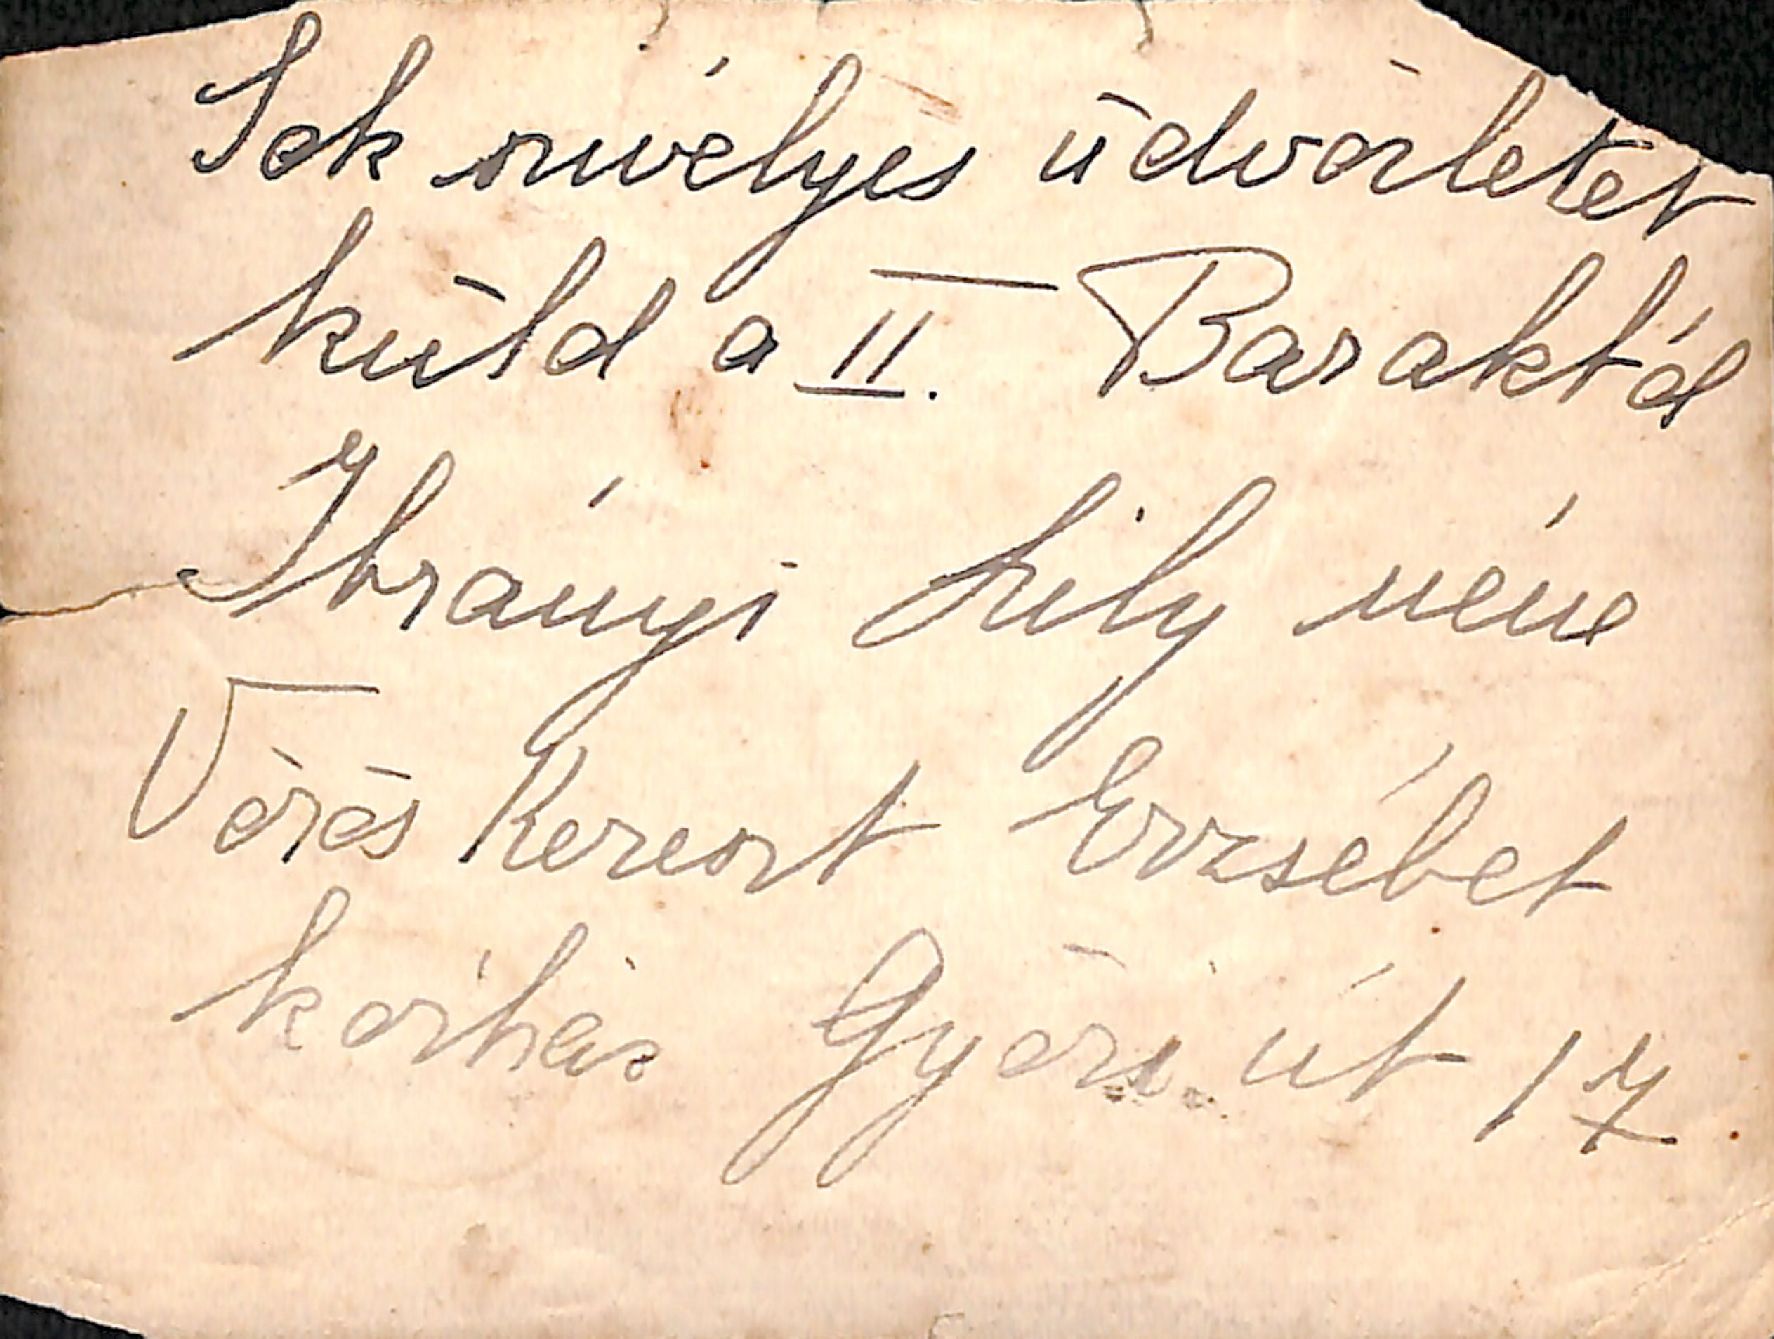 Sok szívélyes üdvözletet
küld a II. Baraktól
Ibrányi Lily néne
Vörös Kereszt Erzsébet
kórház Győri út 17